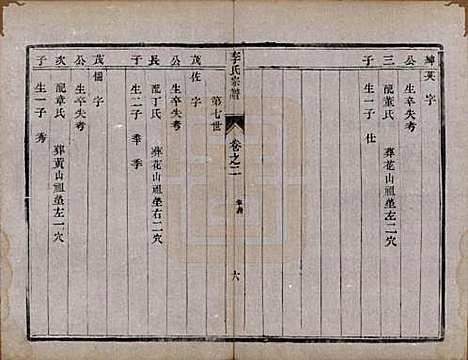 綽英 字
公 生卒失考
三 配董氏 葬花山祖塋左二穴
子 生一子 仕
李氏宗譜
卷之二
六
第七世
茂佐 字
公 生卒失考
長 配丁氏 葬花山祖塋右二穴
子 生二子 奉 季
茂儒 字
公 生卒失考
次 配章氏 葬黃山祖塋左一穴
子 生一子 秀